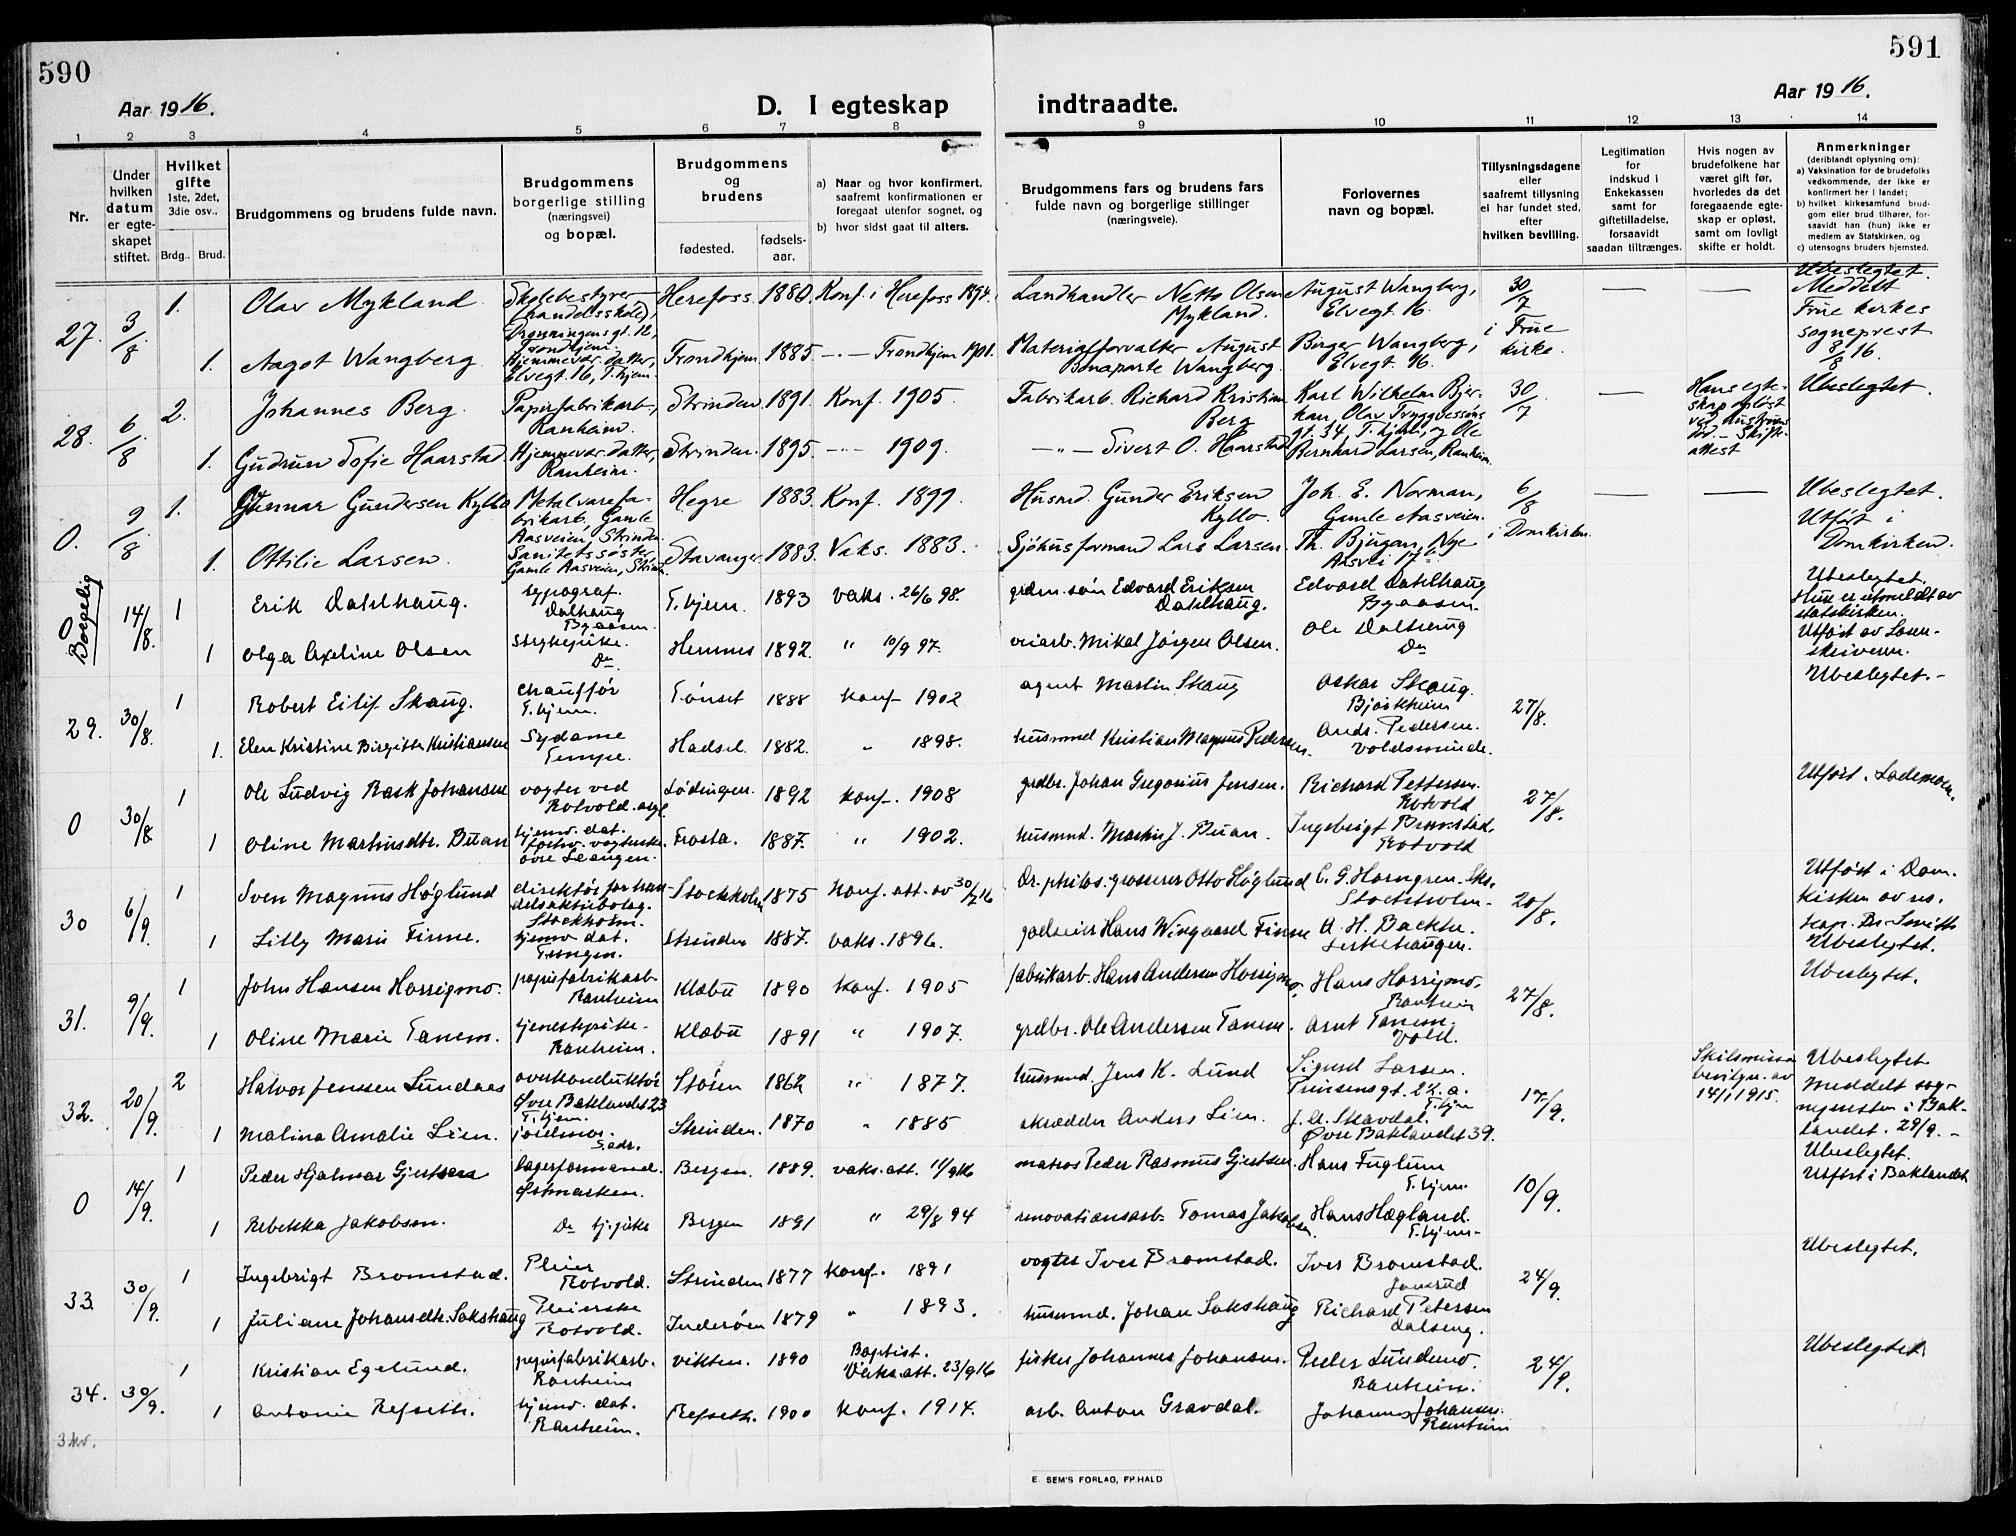 590
591
Aar 1916.
D. I egteskap indtraadte.
Aar 1916.
1 2 3 4 5 6 7 8 9 10 11 12 13 14
Nr.
Under hvilken datum er egteskapet stiftet.
Hvilket gifte
1ste, 2det, 3die osv..
Brdg.. Brud.
Brudgommens og brudens fulde navn.
Brudgommens borgerlige stilling (næringsvei) og bopæl.
Brudgommens og brudens
fødested. fødsels-aar.
a) Naar og hvor konfirmert, saafremt konfirmationen er foregaat utenfor sognet, og
b) hvor sidst gaat til alters.
Brudgommens fars og brudens fars fulde navn og borgerlige stillinger (næringsveie).
Forlovernes navn og bopæl.
Tillysningsdagene eller saafremt tillysning ei har fundet sted, efter hvilken bevilling.
Legitimation for indskud i Enkekassen samt for giftetilladelse, forsaavidt saadan tiltrænges.
Hvis nogen av brudefolkene har været gift før, hvorledes da det foregaaende egteskap er opløst, samt om lovligt skifte er holdt.
Anmerkninger (deriblandt oplysning om): a) Vaksination for de brudefolks vedkommende, der ikke er konfirmert her i landet; b) hvilket kirkesamfund brudgom eller brud tilhører, forsaavidt han (hun) ikke er medlem av Statskirken, og c) utensogns bruders hjemsted.
27. 3/8 1. Olav Mykland Skolebestyrer (handelsskole), Dronningensgt. 12, Trondhjem. Herefoss 1880. Konf. i Herefoss 1894. Landhandler Netto Olsen Mykland. August Wangberg, Elvegt. 16. 30/7 i Frue kirke. — — Ubeslegtet. Meddelt Frue kirkes sogneprest 8/8 16.
1. Aagot Wangberg Hjemmevær. datter, Elvegt. 16, T.hjem. Trondhjem 1885. —"— Trondhjem 1901. Materialforvalter August Bonaparte Wangberg. Birger Wangberg, Elvegt. 16.
28. 6/8 2. Johannes Berg. Papirfabrikarb., Ranheim. Strinden 1891. Konf. 1905. Fabrikarb. Richard Kristian Berg Karl Wilhelm Bjerkan, Olav Tryggvessøns gt. 34, T.hjem, og Ole Bernhard Larsen, Ranheim. 30/7 — Hans egteskap opløst ved hustruens død. – Skifteattest Ubeslegtet.
1. Gudrun Sofie Haarstad Hjemmevær. datter, Ranheim. Strinden. 1895. —"— 1909. —"— Sivert O. Haarstad
0. 9/8 1. Gunnar Gundersen Kyllo Metalvarefabrikarb., Gamle Aasveien, Strinden. Hegre 1883. Konf. 1899. Husmd. Gunder Eriksen Kyllo. Joh. E. Norman, Gamle Aasveien. 6/8 i Domkirken — — Ubeslegtet. Utført i Domkirken.
1. Ottilie Larsen Sanitetssøster, Gamle Aasveien, Strind. Stavanger 1883. Vaks. 1883. Sjøhusformand Lars Larsen. Th. Bjugan, Nye Aasvei 17
0 Borgelig 14/8. 1 Erik Dahlhaug. typograf. Dalhaug Byaasen. T.hjem. 1893 vaks. 26/6 98. grdm. søn Edvard Eriksen Dahlhaug. Edvard Dahlhaug Byaasen. Ubeslegtet. Hun er utmeldt av statskirken. Utført av Sorenskriveren.
1 Olga Axeline Olsen strykepike. Do. Hemnes 1892. " 10/9 97. veiarb. Mikal Jørgen Olsen. Ole Dalhaug Do
29. 30/8. 1 Robert Eilif Skaug. chauffør T.hjem. Tønset 1888 konf. 1902 agent Martin Skaug Oskar Skaug. Bjørkheim 27/8. Ubeslegtet.-
1. Elen Kristine Birgitte Kristiansen Sydame Tempe. Hadsel. 1882. " 1898. husmnd Kristian Magnus Pedersen. Andr. Pedersen. Voldsminde.
0 30/8. 1 Ole Ludvig Rask Johansen vogter ved Rotvold asyl Lødingen. 1892 konf. 1908 grdbr. Johan Gregorius Jensen. Richard Pettersen. Rotvold 27/8. Utført i Lademoen.
1 Oline Martinsdtr. Buan hjemv. dat. forhv. vogterske. øvre Leangen. Frosta. 1887. " 1902. husmnd. Martin J. Buan. Ingebrigt Bromstad. Rotvold
30 6/9. 1 Sven Magnus Høglund direktør for handelsaktiebolag. Stockholm. Stockholm 1875 konf. att. av 30/7 16 Dr. philos. grosserer Otto Høglund C. G. Horngren. Stockholm. 20/8. Utført i Domkirken av res. kap. Br. Smith Ubeslegtet.
1 Lilly Marie Finne. hjemv. dat. Tungen. Strinden 1887. vaks. 1896. godseier Hans Wingaard Finne A. H. Backke. Lerkehaugen.
31. 9/9. 1 John Hansen Horrigmo. papirfabrikarb. Ranheim Klæbu 1890 konf. 1905 fabrikarb. Hans Andersen Horrigmo. Hans Horrigmo. Ranheim 27/8. Ubeslegtet.
1 Oline Marie Tanem. tjenestepike. Ranheim. Klæbu 1891 " 1907. grdbr. Ole Andersen Tanem. Arnt Tanem. Vold.
32. 20/9. 2 Halvor Jenssen Lundaas overkonduktør Øvre Baklandet 23 T.hjem. Støren 1862 " 1877. husmnd. Jens K. Lund Sigurd Larsen. Prinsensgt. 2½ a. T.hjem 17/9. Skilsmisse bevilgn. av 14/1 1915. Ubeslegtet Meddelt sognepresten i Baklandet. 29/9. –
1 Malina Amalie Lien. jordmor. Sadr. Strinden. 1870 " 1885 skrædder Anders Lien. J. A. Skavdal. Øvre Baklandet 39.
0 14/9. 1 Peder Hjalmar Gjertsen lagerformand. Østmarken. Bergen. 1889. vaks. att. 11/9 16 matros Peder Rasmus Gjertsen. Hans Fuglum T.hjem. 10/9. Ubeslegtet. Utført i Baklandet
1 Rebekka Jakobsen. Do tj. pike Bergen 1891 " 29/8 94 renovationsarb. Tomas Jakobsen. Hans Hægland. T.hjem.
33. 30/9. 1 Ingebrigt Bromstad. Pleier Rotvold. Strinden 1877 konf. 1891 vogter Iver Bromstad. Iver Bromstad. Jonsrud 24/9. Ubeslegtet.
1 Juliane Johansdtr. Sakshaug Pleierske Rotvold. Inderøen 1879 " 1893. husmnd. Johan Sakshaug Richard Petersen Dalseng.
34. 30/9. 1 Kristian Egelund. papirfabrikarb. Ranheim Vikten. 1890 Baptist. Vaks. att. 23/9 16 fisker Johannes Johansen. Peder Lundemo. Ranheim. 24/9. Ubeslegtet.
1 Antonie Refseth. hjemv. dat. Ranheim. Refseth. 1900 konf. 1914. arb. Anton Gravdal. Johannes Johansen. Ranheim
3 kv.
E. SEM'S FORLAG, FR.HALD